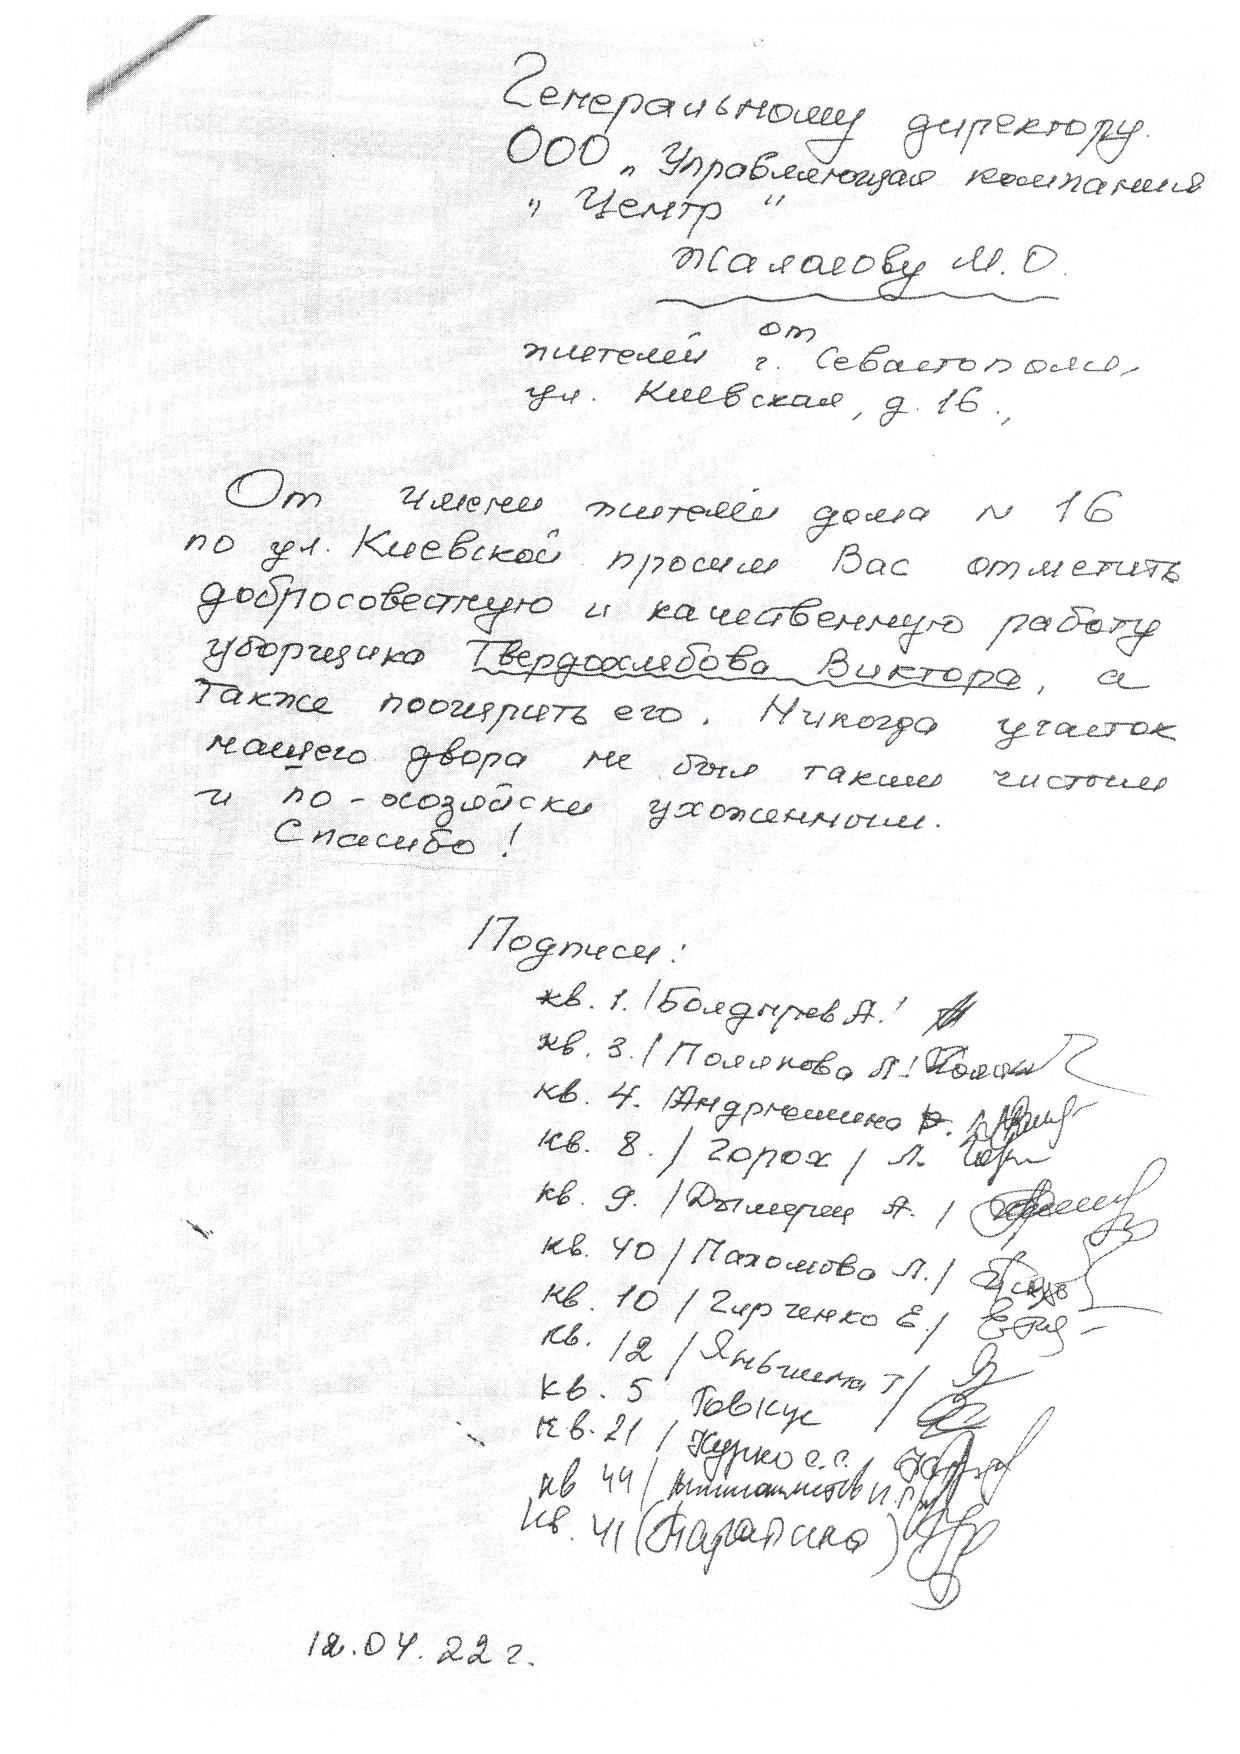 Генеральному директору.
ООО „Управляющая компания
„Центр“
Жалагову М.О.
от
жителей г. Севастополя,
ул. Киевская, д. 16.,
От имени жителей дома № 16
по ул. Киевской просим Вас отметить
добросовестную и качественную работу
уборщика Твердохлебова Виктора, а
также поощрить его. Никогда участок
нашего двора не был таким чистым
и по-хозяйски ухоженным.
Спасибо!
Подписи:
кв. 1. / Болдырев А. /
кв. 3. / Полякова Л. /
кв. 4. / Андрюшина
кв. 8. / Горох / Л.
кв. 9. / А. /
кв. 40 / Пахомова Л. /
кв. 10 / Гирченко Е. /
кв. 12 / Т /
кв. 5 Товкус /
кв. 21 / С.С. /
кв 44 /
кв. 41 ( )
12.04.22 г.